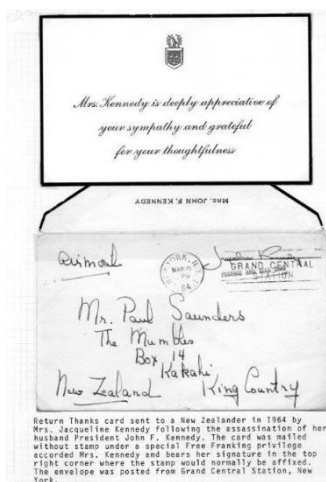 Mrs. Kennedy is deeply appreciative of
your sympathy and grateful
for your thoughtfulness
MRS. JOHN F. KENNEDY
Airmail
Jacqueline Kennedy
NEW YORK, N.Y.
MAR
PM
64
GRAND CENTRAL
STATION
Mr. Paul Saunders
The Mumbles
Box 14
Kakahi
New Zealand King Country
Return Thanks card sent to a New Zealander in 1964 by
Mrs. Jacqueline Kennedy following the assassination of her
husband President John F. Kennedy. The card was mailed
without stamp under a special Free Franking privilege
accorded Mrs. Kennedy and bears her signature in the top
right corner where the stamp would normally be affixed.
The envelope was posted from Grand Central Station, New
York.